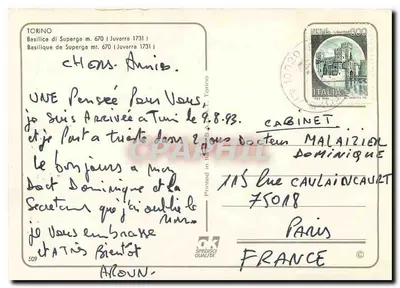 TORINO
Basilica di Superga mt. 670 (Juvarra 1731)
Basilique de Superga mt. 670 (Juvarra 1731)
CHERS Amies.
UNE Pensée Pour Vous
je suis Arrivée a Turi le 9.8.93.
et je Part a
le bonjours a mon
Doct Dominique et la
Secretaire que j'ai oublié le
Nom.
je Vous embrasse
et A TRES Bientot
AROUN.
509
Printed in
Torino
ITALIA
CABINET
Docteur MALAIZIER
DOMINIQUE
115 Rue CAULAINCOURT
75018
Paris
FRANCE
ak
SPEDISCI
QUALITÀ
©
CPARAMA